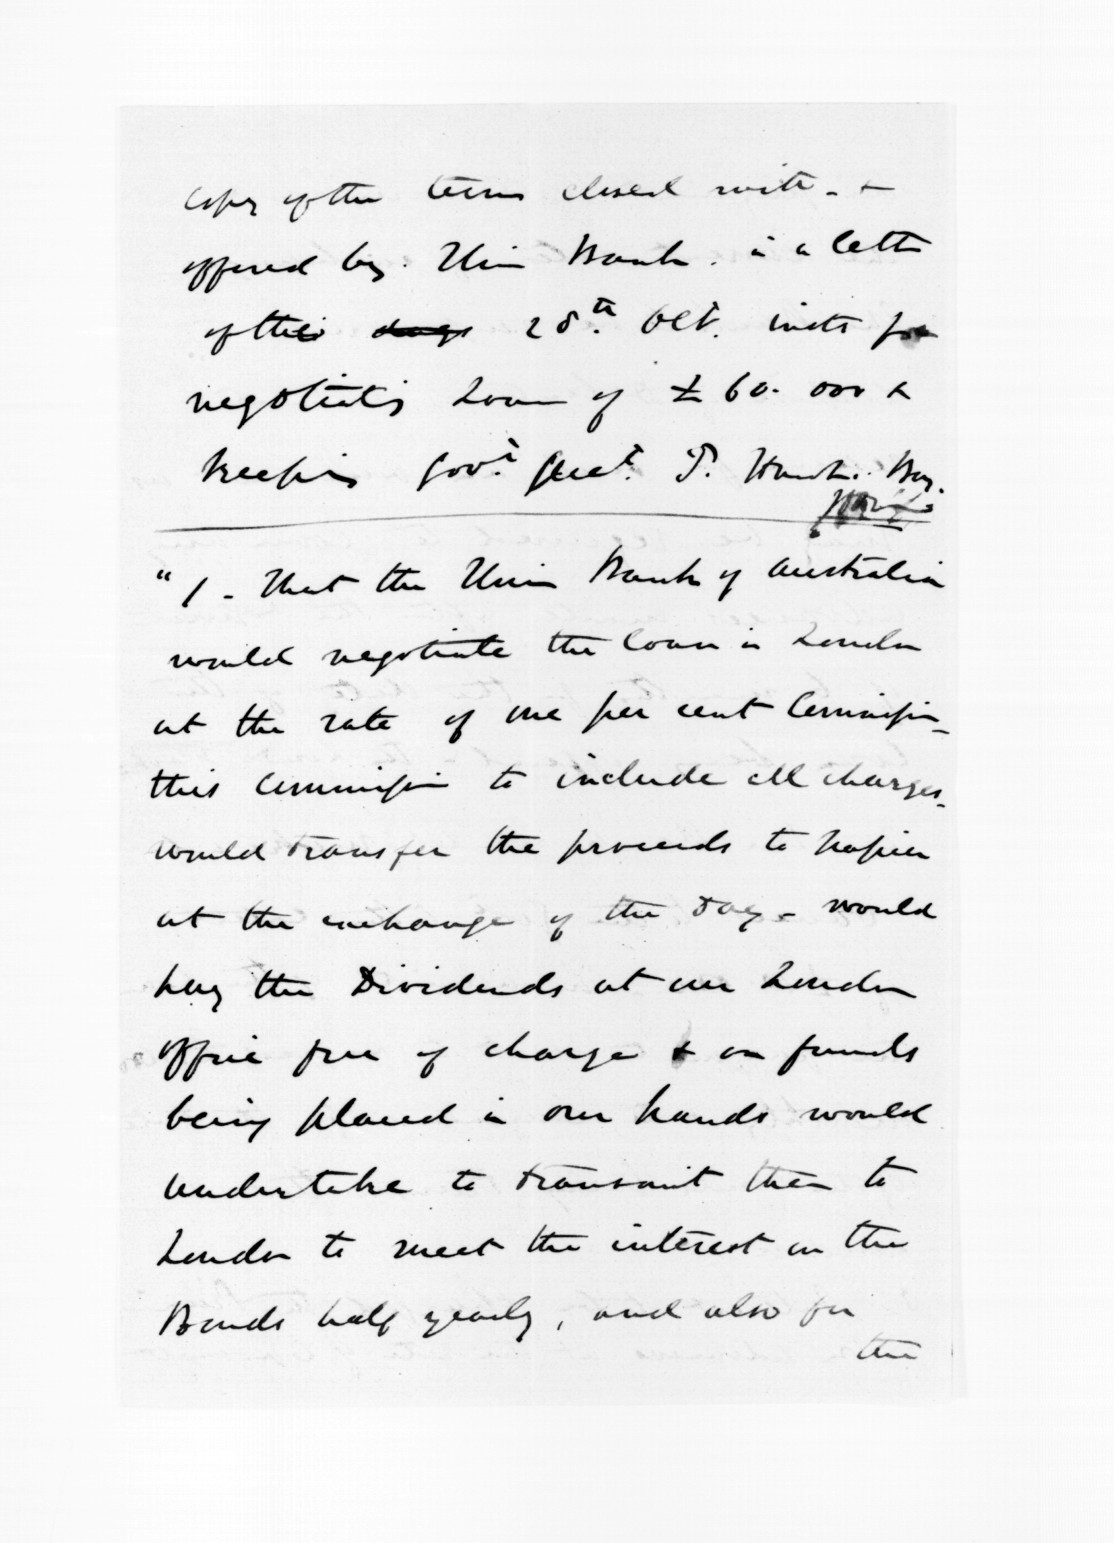 Copy of the terms closed with - &
offered by Union Bank. in a letter
of the days 28th Oct. inst for
negotiating Loan of £60.000 &
keeping Govt. Acct. P. Hawke's Bay.
"1 - That the Union Bank of Australia
would negotiate the loan in London
at the rate of one per cent Commission -
this Commission to include all charges.
would transfer the proceeds to Napier
at the exchange of the day - would
pay the Dividends at our London
office free of charge & on funds
being placed in our hands would
undertake to transmit them to
London to meet the interest on the
Bonds half yearly, and also for
the